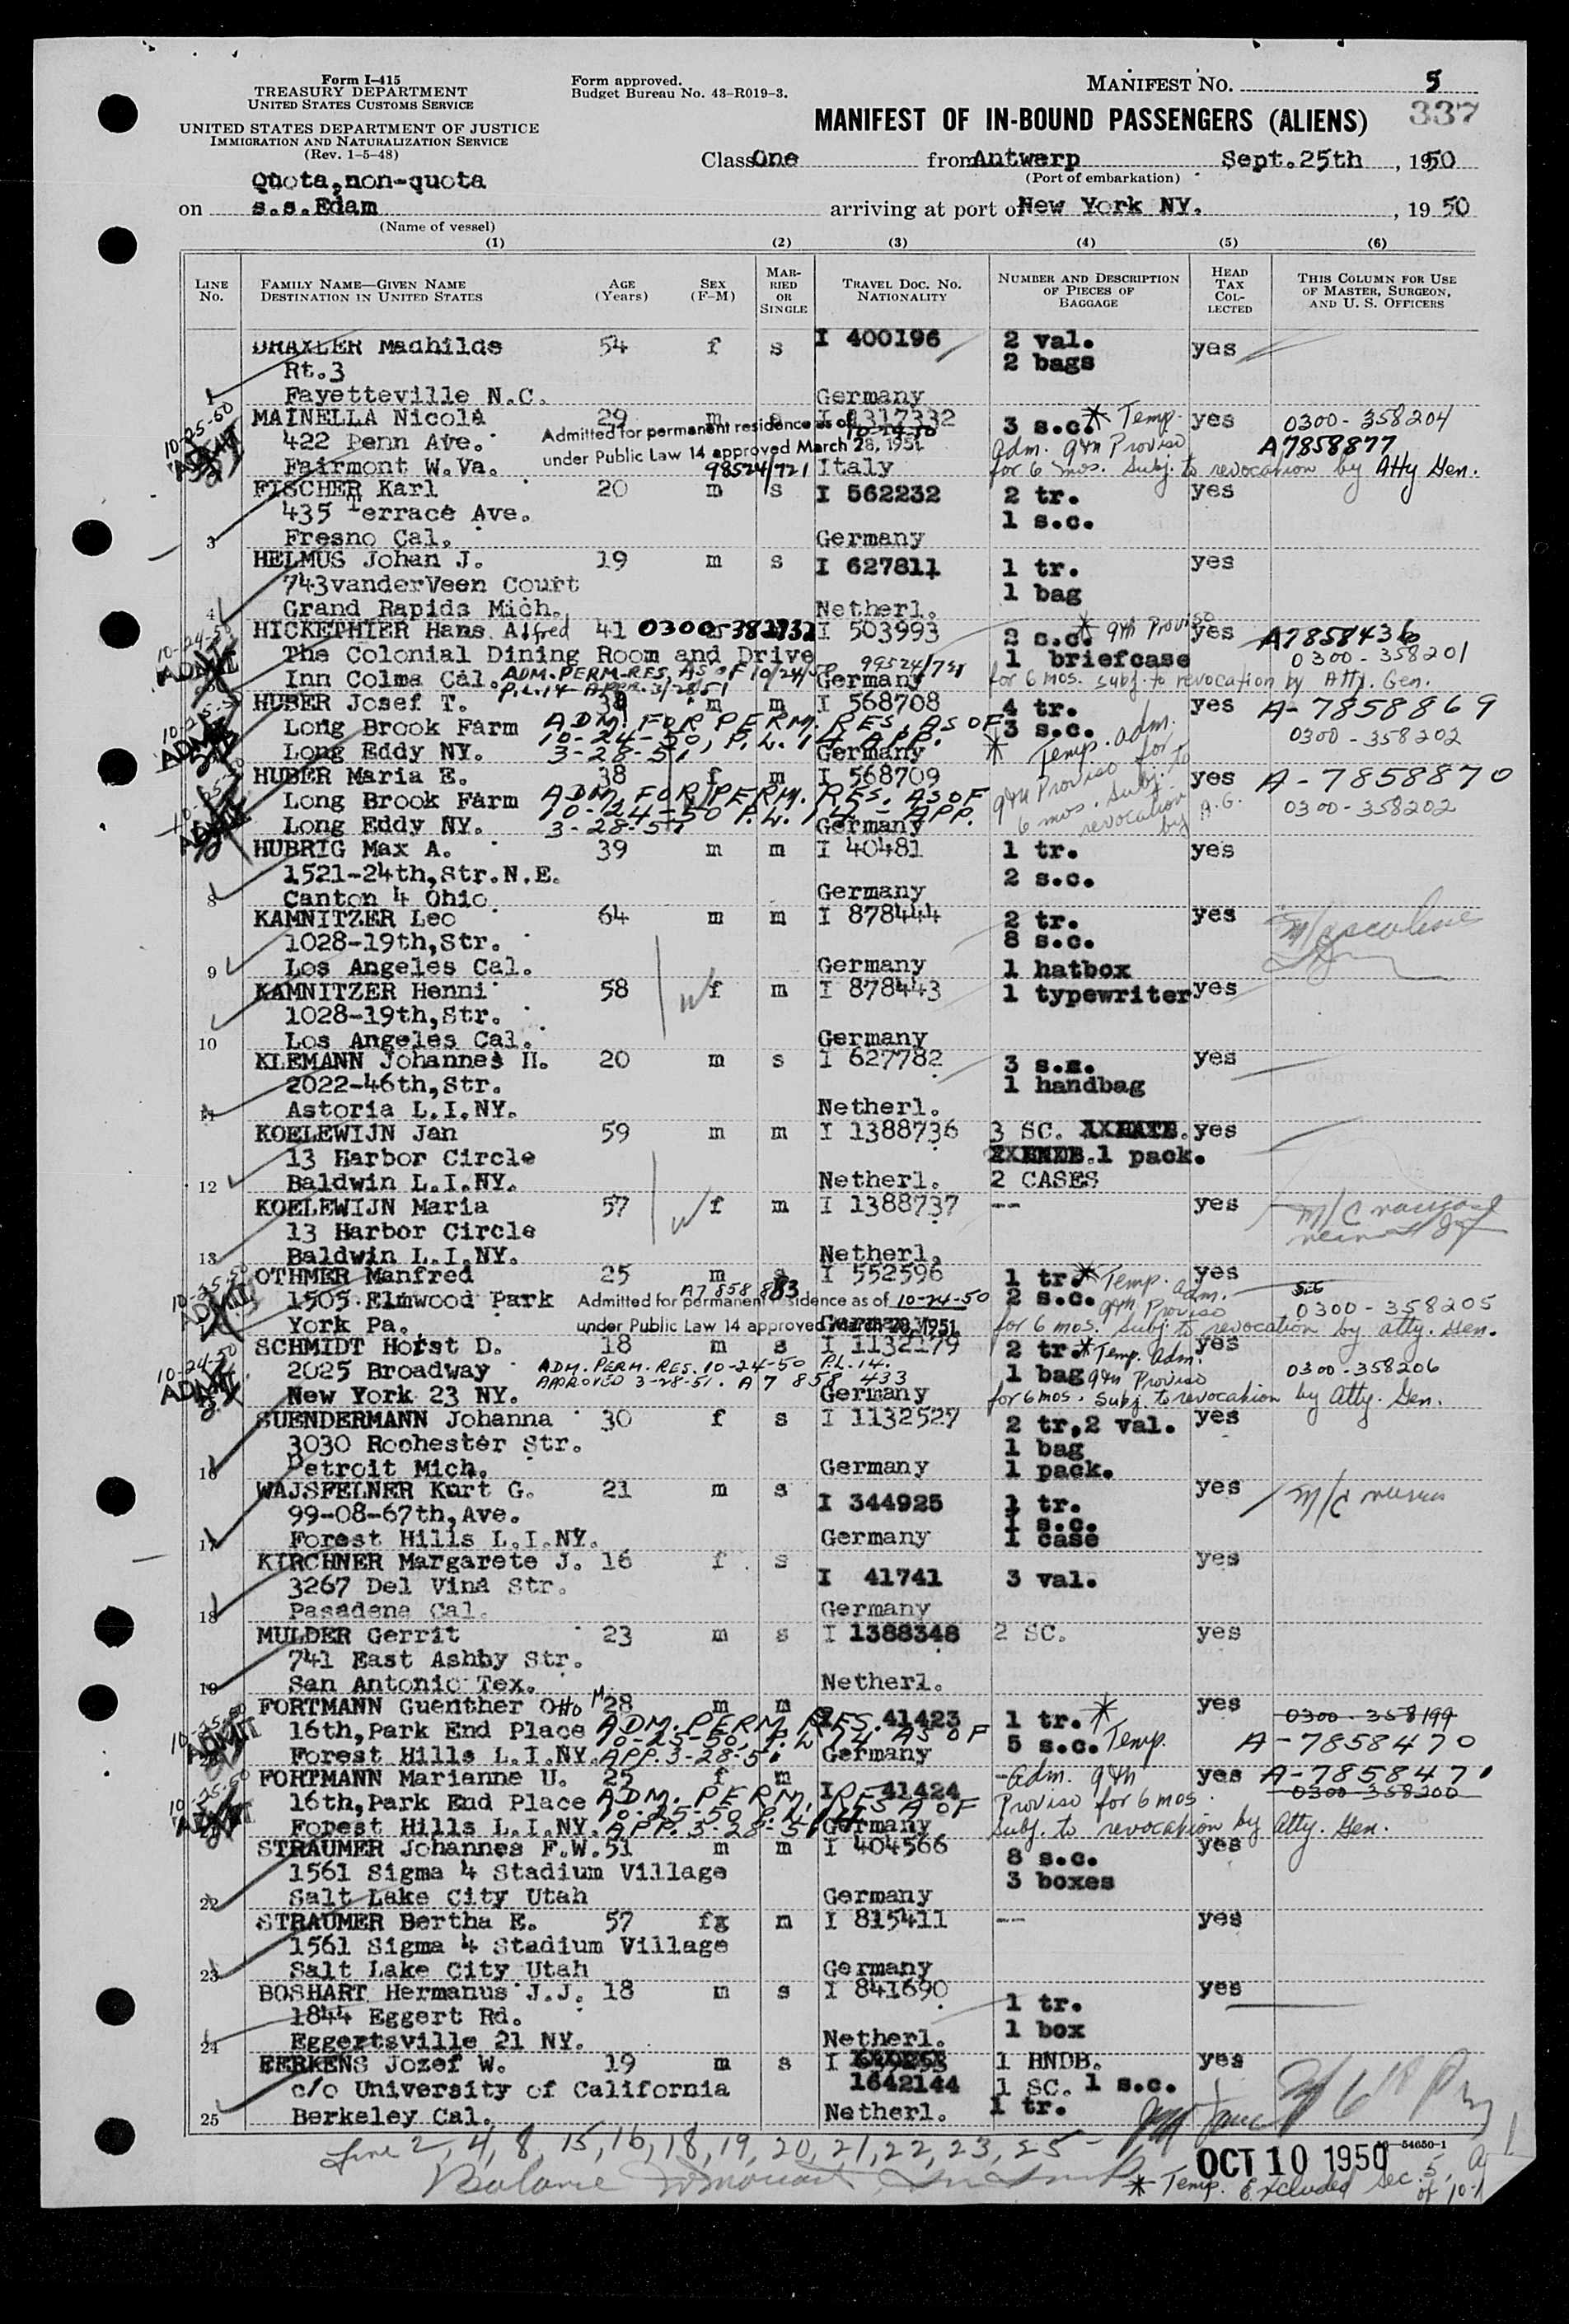 Form I-415
TREASURY DEPARTMENT
UNITED STATES CUSTOMS SERVICE
UNITED STATES DEPARTMENT OF JUSTICE
IMMIGRATION AND NATURALIZATION SERVICE
(Rev. 1-5-48)
Form approved.
Budget Bureau No. 43-R019-3.
MANIFEST No. 5
337
MANIFEST OF IN-BOUND PASSENGERS (ALIENS)
Class One from Antwerp Sept.25th, 1950
(Port of embarkation)
Quota,non-quota
on s.s.Edam arriving at port of New York NY., 1950
(Name of vessel)
(1) (2) (3) (4) (5) (6)
LINE No. FAMILY NAME—GIVEN NAME DESTINATION IN UNITED STATES AGE (Years) SEX (F-M) MARRIED OR SINGLE TRAVEL DOC. NO. NATIONALITY NUMBER AND DESCRIPTION OF PIECES OF BAGGAGE HEAD TAX COLLECTED THIS COLUMN FOR USE OF MASTER, SURGEON, AND U. S. OFFICERS
DRAXLER Madhilde 54 f s I 400196 2 val. yes
Rt.3 2 bags
Fayetteville N.C. Germany
MAINELLA Nicola 29 m s I 1317332 3 s.c. * Temp. yes 0300-358204
10-25-50 ADMIT 422 Penn Ave. Admitted for permanent residence as of 10-24-50 adm. 9th Proviso A7858877
under Public Law 14 approved March 28, 1951
Fairmont W.Va. 98524/721 Italy for 6 mos. subj. to revocation by Atty Gen.
FISCHER Karl 20 m s I 562232 2 tr. yes
435 Terrace Ave. 1 s.c.
3 Fresno Cal. Germany
HELMUS Johan J. 19 m s I 627811 1 tr. yes
743vanderVeen Court 1 bag
4 Grand Rapids Mich. Netherl.
HICKETHIER Hans Alfred 41 I 503993 2 s.c. * 9th Proviso yes A7858436
10-24-50 ADMIT The Colonial Dining Room and Drive 1 briefcase 0300-358201
Inn Colma Cal. ADM. PERM. RES. AS OF 10/24/50 Germany for 6 mos. subj. to revocation by Atty. Gen.
P.L. 14 APPR. 3/28/51
HUBER Josef T. 38 m m I 568708 4 tr. yes A-7858869
Long Brook Farm ADM. FOR PERM. RES. AS OF 3 s.c. 0300-358202
10-24-50, P.L. 14 APP.
Long Eddy NY. 3-28-51 Germany * Temp. adm.
HUBER Maria E. 38 f m I 568709 9th Proviso for yes A-7858870
Long Brook Farm ADM. FOR PERM. RES. AS OF 6 mos. subj. to 0300-358202
10-24-50 P.L. 14 - APP. revocation
Long Eddy NY. 3-28-51 Germany by A.G.
HUBRIG Max A. 39 m m I 40481 1 tr. yes
1521-24th,Str.N.E. 2 s.c.
8 Canton 4 Ohio Germany
KAMNITZER Leo 64 m m I 878444 2 tr. yes
1028-19th,Str. 8 s.c.
9 Los Angeles Cal. Germany 1 hatbox
KAMNITZER Henni 58 f m I 878443 1 typewriter yes
1028-19th,Str.
10 Los Angeles Cal. Germany
KLEMANN Johannes H. 20 m s I 627782 3 s.c. yes
2022-46th,Str. 1 handbag
11 Astoria L.I.NY. Netherl.
KOELEWIJN Jan 59 m m I 1388736 3 SC. yes
13 Harbor Circle 1 pack.
12 Baldwin L.I.NY. Netherl. 2 CASES
KOELEWIJN Maria 57 f m I 1388737 -- yes
13 Harbor Circle
13 Baldwin L.I.NY. Netherl.
OTHMER Manfred 25 m s I 552596 1 tr. * Temp. adm. yes
10-25-50 ADMIT 1505 Elmwood Park A7 858 883 2 s.c. 9th Proviso 0300-358205
Admitted for permanent residence as of 10-24-50
York Pa. under Public Law 14 approved March 28, 1951 Germany for 6 mos. subj. to revocation by atty. Gen.
SCHMIDT Horst D. 18 m s I 1132179 2 tr. * Temp. Adm. yes
10-24-50 ADMIT 2025 Broadway ADM. PERM. RES. 10-24-50 P.L. 14. 1 bag 9th Proviso 0300-358206
APPROVED 3-28-51. A 7 858 433
New York 23 NY. Germany for 6 mos. subj. to revocation by Atty. Gen.
SUENDERMANN Johanna 30 f s I 1132527 2 tr,2 val. yes
3030 Rochester Str. 1 bag
16 Detroit Mich. Germany 1 pack.
WAJSFELNER Kurt G. 21 m s I 344925 1 tr. yes
99-08-67th,Ave. 1 s.c.
17 Forest Hills L.I.NY. Germany 1 case
KIRCHNER Margarete J. 16 f s I 41741 3 val. yes
3267 Del Vina Str.
18 Pasadena Cal. Germany
MULDER Gerrit 23 m s I 1388348 2 SC. yes
741 East Ashby Str.
19 San Antonio Tex. Netherl.
FORTMANN Guenther Otto M 28 m m I 41423 1 tr. * yes 0300-358199
16th,Park End Place ADM. PERM. RES. AS OF 5 s.c. Temp. A-7858470
10-25-50, P.L. 14
Forest Hills L.I.NY. APP. 3-28-51 Germany
FORTMANN Marianne U. 25 f m I 41424 - adm. 9th yes A-7858471
10-25-50 16th,Park End Place ADM. PERM. RES AS OF Proviso for 6 mos. 0300-358200
10-25-50 P.L. 14
Forest Hills L.I.NY. APP. 3-28-51 Germany subj. to revocation by Atty. Gen.
STRAUMER Johannes F.W. 51 m m I 404566 8 s.c. yes
1561 Sigma 4 Stadium Village 3 boxes
22 Salt Lake City Utah Germany
STRAUMER Bertha E. 57 fg m I 815411 -- yes
1561 Sigma 4 Stadium Village
23 Salt Lake City Utah Germany
BOSHART Hermanus J.J. 18 m s I 841690 1 tr. yes
1844 Eggert Rd. 1 box
24 Eggertsville 21 NY. Netherl.
EERKENS Jozef W. 19 m s I 1 HNDB. yes
c/o University of California 1642144 1 SC. 1 s.c.
25 Berkeley Cal. Netherl. 1 tr.
Line 2, 4, 8, 15, 16, 18, 19, 20, 21, 22, 23, 25 -
OCT 10 1950
16-54650-1
* Temp. Excluded Sec. 5,
of 10-1